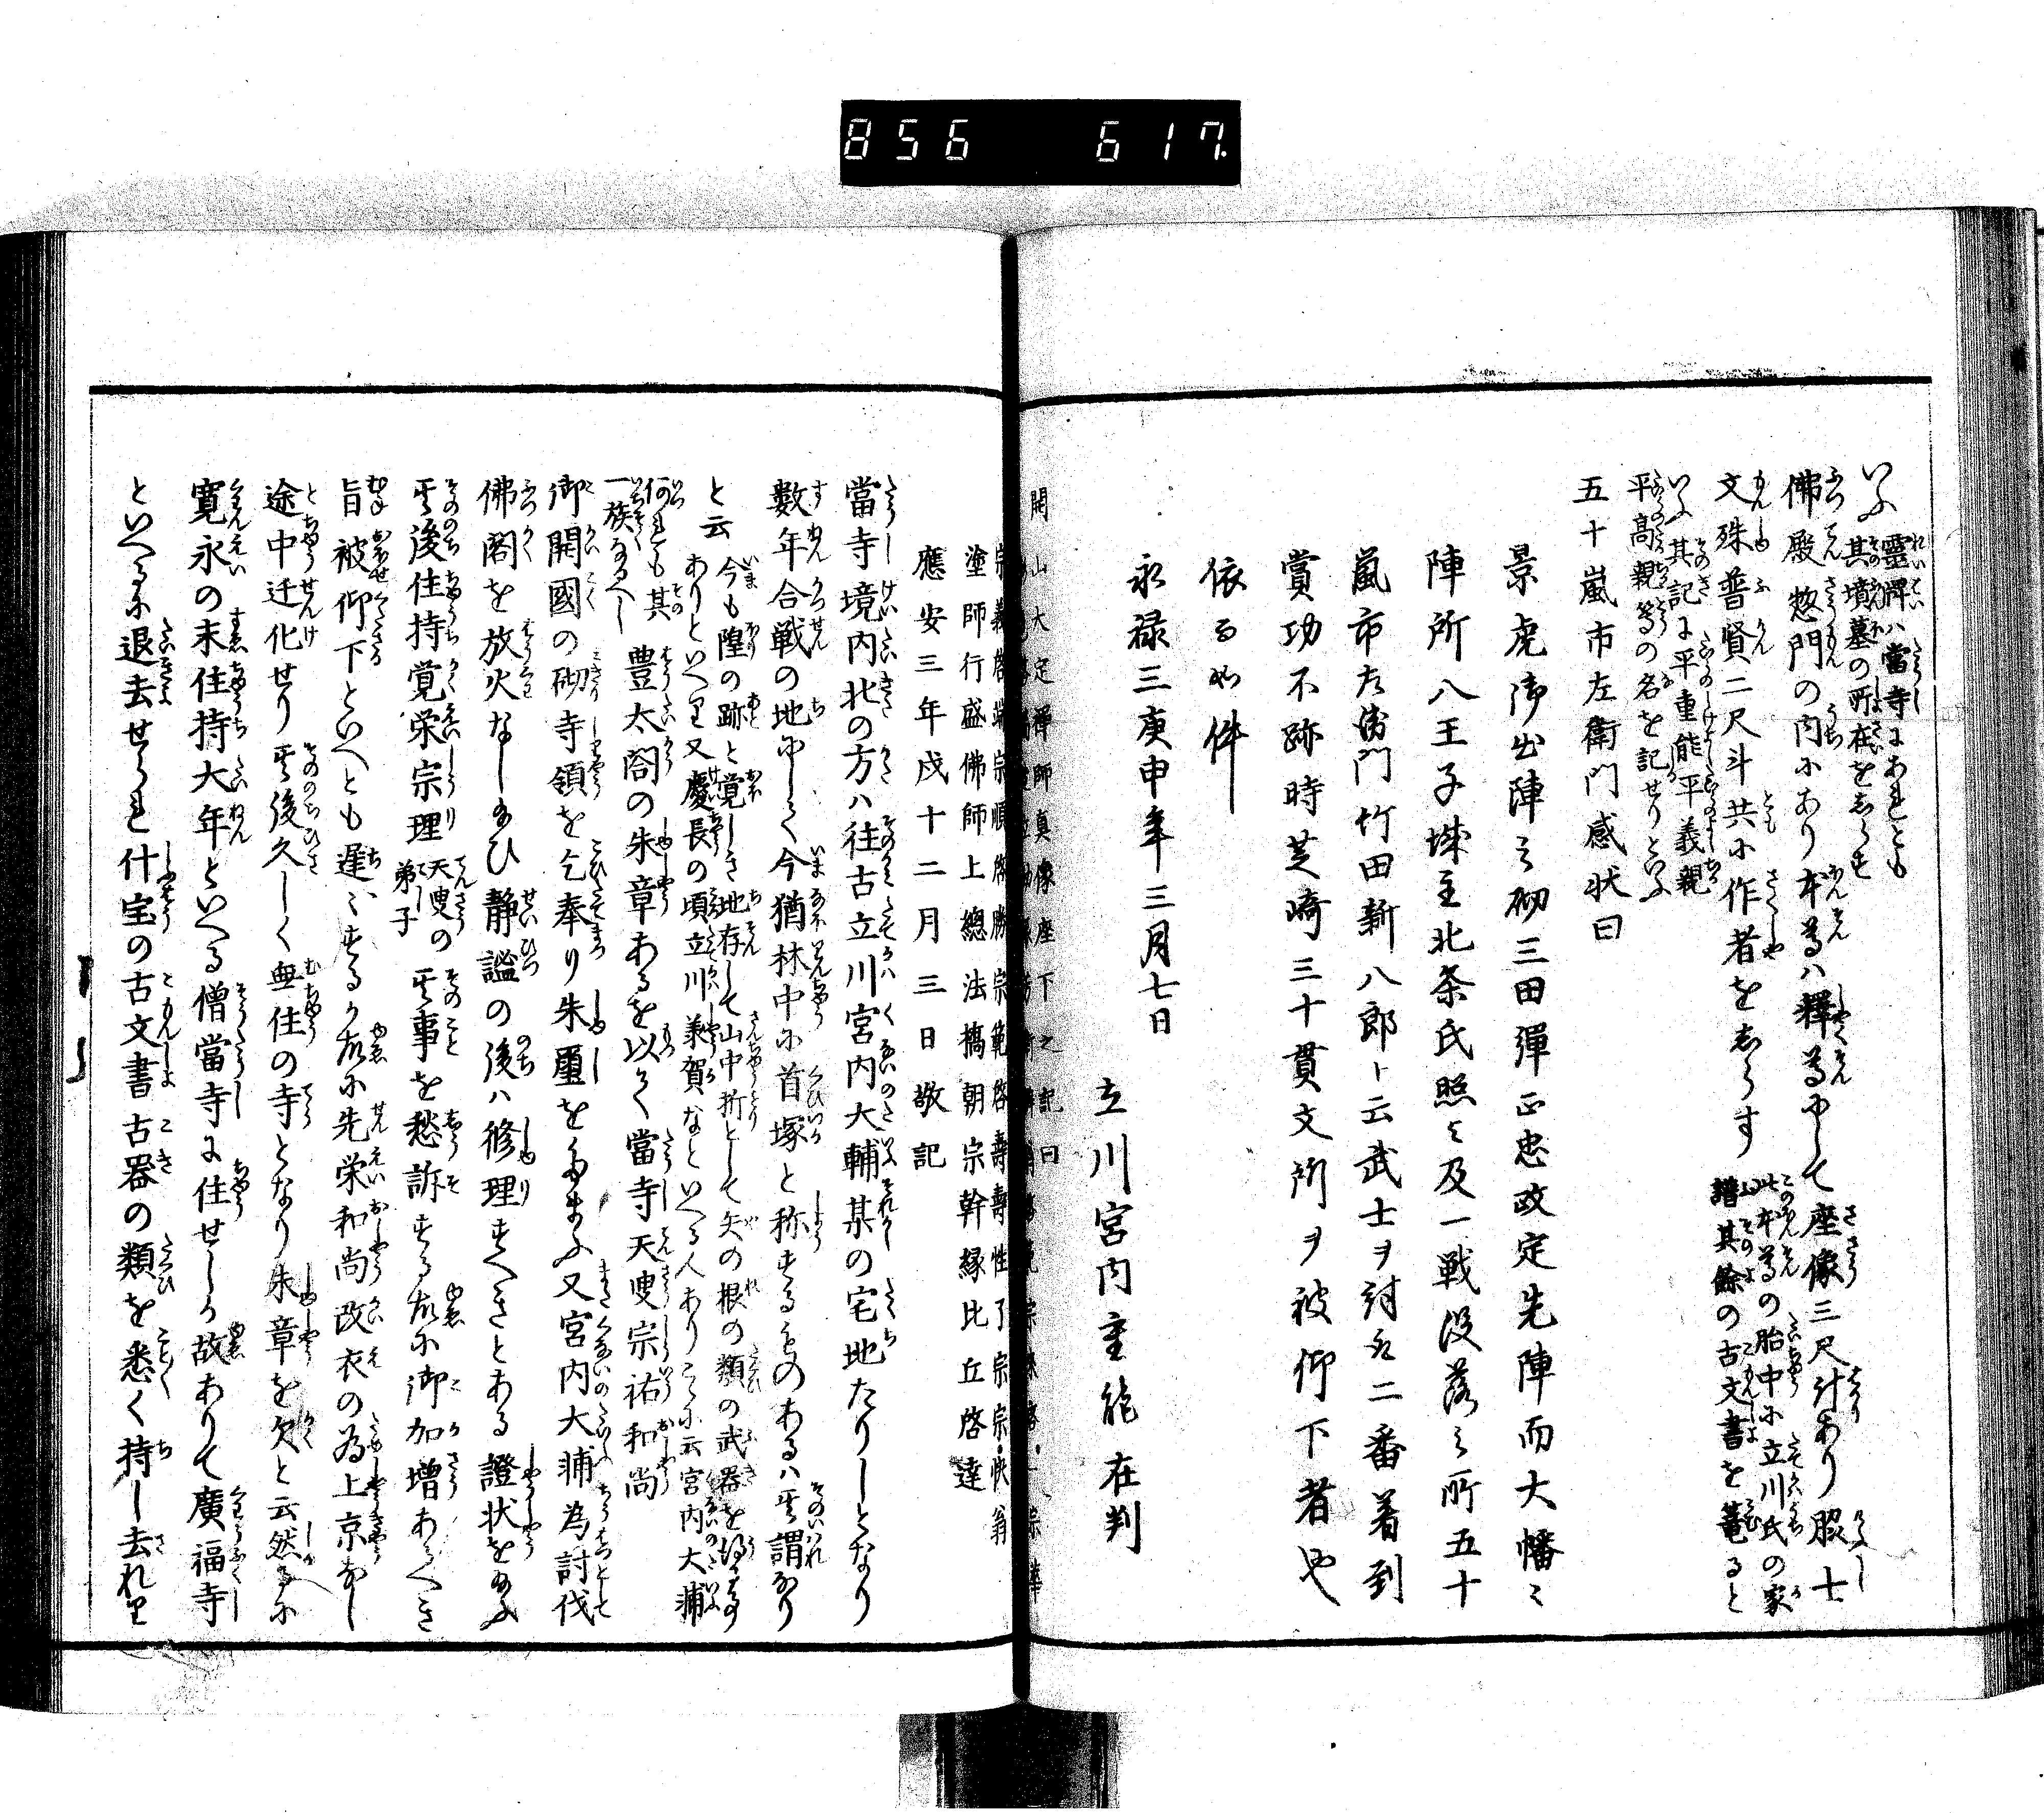 856 617
いふ 靈牌ハ當寺にあれとも
其墳墓の所在をしらす
佛殿惣門の内にあり本尊ハ釋尊にして座像三尺計あり脇士
文殊普賢二尺斗共に作者をしらす 此本尊の胎中に立川氏の家
譜其餘の古文書を篭ると
いふ其記に平重能平義親
平高親等の名を記せりといふ
五十嵐市左衛門感状曰
景虎御出陣之砌三田彈正忠政定先陣而大幡ニ
陣所八王子城主北条氏照と及一戦没落之所五十
嵐市左衛門竹田新八郎ト云武士ヲ討取二番着到
賞功不跡時芝崎三十貫文所ヲ被仰下者也
依而如件
永禄三庚申年三月七日
立川宮内重能在判
開山大定禅師真像座下之記曰
塗師行盛佛師上總法橋朝宗幹縁比丘啓達
應安三年戌十二月三日敬記
當寺境内北の方ハ往古立川宮内大輔某の宅地たりしとなり
数年合戦の地にして今猶林中に首塚と称するものあるハ其謂なり
と云 今も隍の跡と覚しき地存して山中折として矢の根の類の武器を得る事
ありといへり又慶長の頃立川兼賀なといへる人ありこゝに云宮内大浦
何れも其
一族なるへし
豊太閤の朱章あるを以て當寺天叟宗祐和尚
御開國の砌寺領を乞奉り朱璽をたまふ又宮内大浦為討伐
佛閣を放火なし給ひ静謐の後ハ修理すへきとある證状を給ふ
其後住持覚栄宗理 天叟の
弟子
其事を愁訴する故に御加増あるへき
旨被仰下といへとも遅ゝするか故に先栄和尚改衣の為上京なし
途中迁化せり其後久しく無住の寺となり朱章を欠と云然るに
寛永の末住持大年といへる僧當寺に住せしか故ありて廣福寺
といへるに退去せられ什宝の古文書古器の類を悉く持し去れり